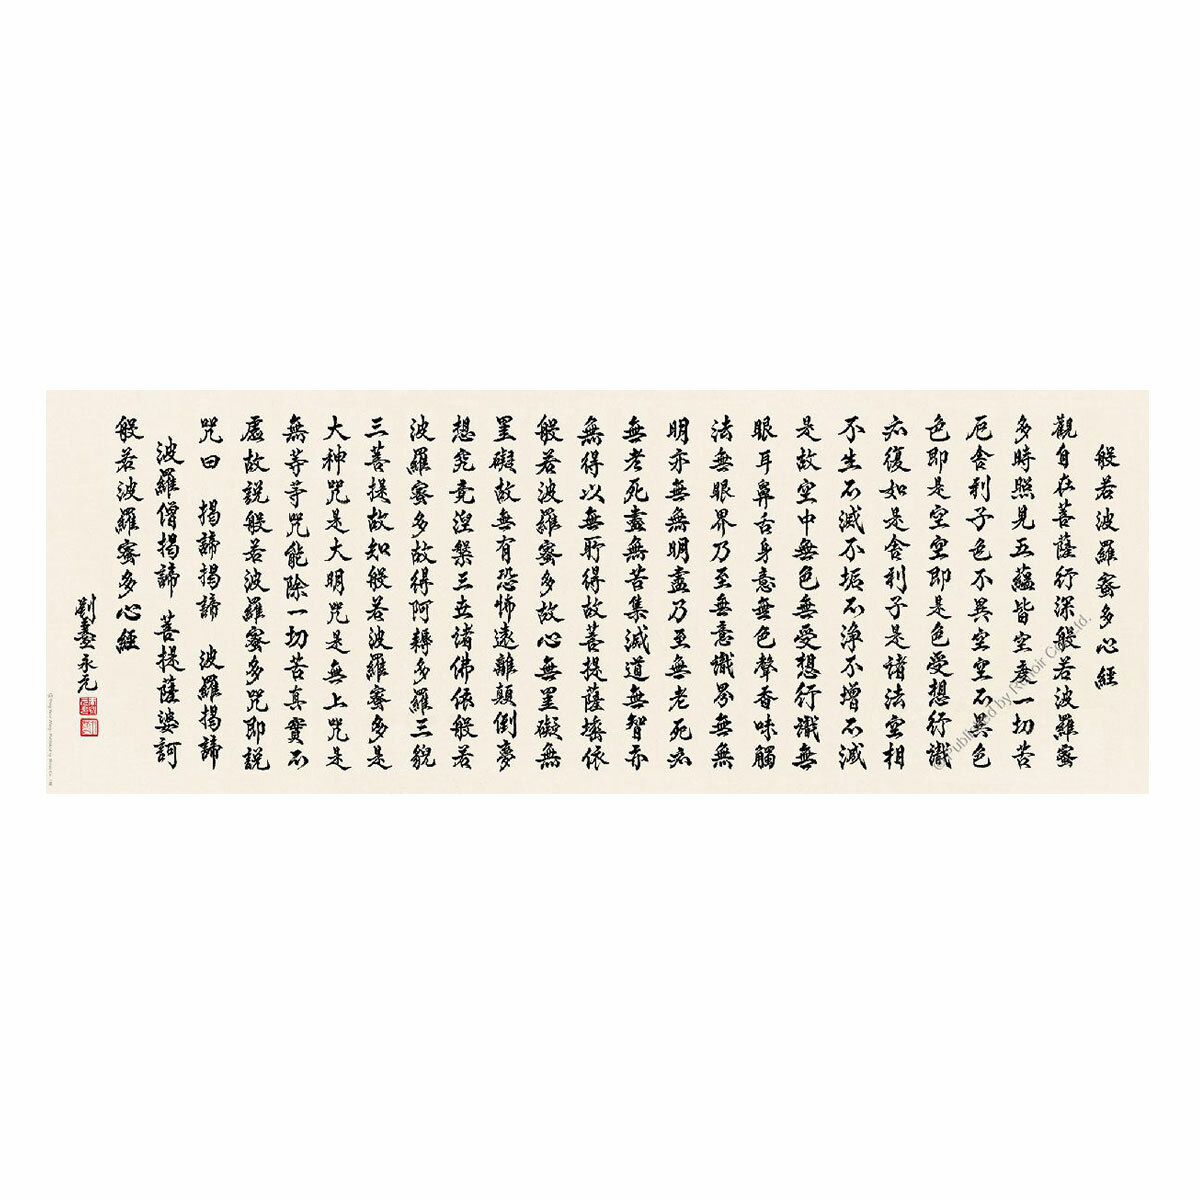 般若波羅蜜多心經
觀自在菩薩行深般若波羅蜜
多時照見五蘊皆空度一切苦
厄舍利子色不異空空不異色
色即是空空即是色受想行識
亦復如是舍利子是諸法空相
不生不滅不垢不淨不增不減
是故空中無色無受想行識無
眼耳鼻舌身意無色聲香味觸
法無眼界乃至無意識界無無
明亦無無明盡乃至無老死亦
無老死盡無苦集滅道無智亦
無得以無所得故菩提薩埵依
般若波羅蜜多故心無罣礙無
罣礙故無有恐怖遠離顛倒夢
想究竟涅槃三世諸佛依般若
波羅蜜多故得阿耨多羅三藐
三菩提故知般若波羅蜜多是
大神咒是大明咒是無上咒是
無等等咒能除一切苦真實不
虛故說般若波羅蜜多咒即說
咒曰 揭諦揭諦 波羅揭諦
波羅僧揭諦 菩提薩婆訶
般若波羅蜜多心經
劉 永元
Published by Renoir Co., Ltd.